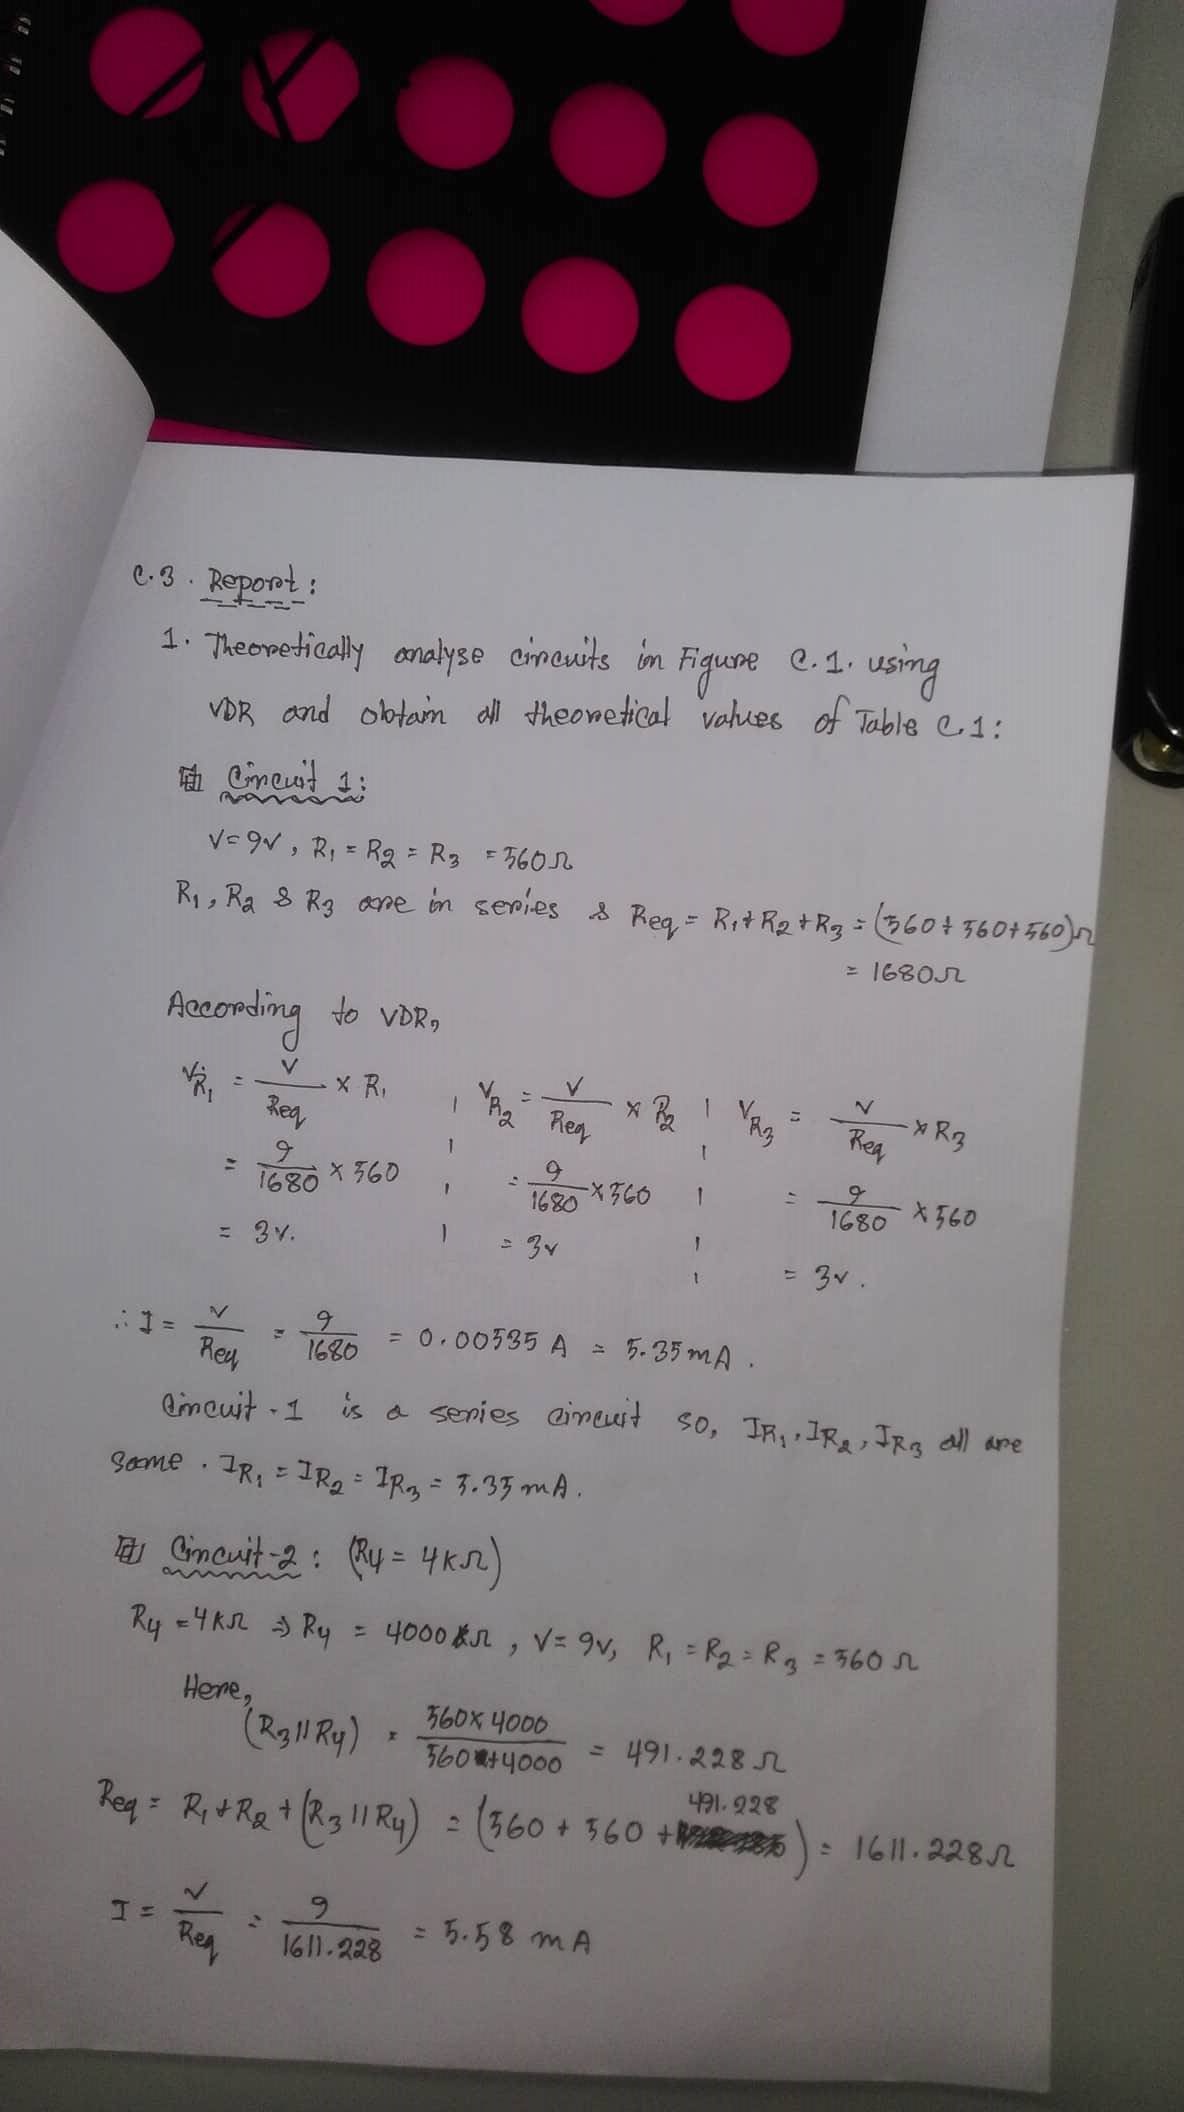 C.3. Report:
1. Theoretically analyse circuits in Figure C.1. using
VDR and obtain all theoretical values of Table C.1:
Circuit 1:
V=9V, R₁ = R₂ = R₃ = 560Ω
R₁, R₂ & R₃ are in series & Req = R₁+R₂+R₃ = (560+560+560)Ω
= 1680Ω
According to VDR,
V_R₁ = V/Req × R₁ | V_R₂ = V/Req × R₂ | V_R₃ = V/Req × R₃
= 9/1680 × 560 | = 9/1680 × 560 | = 9/1680 × 560
= 3V. | = 3V | = 3V.
∴ I = V/Req = 9/1680 = 0.00535 A = 5.35 mA.
Circuit-1 is a series circuit so, IR₁, IR₂, IR₃ all are
same. IR₁ = IR₂ = IR₃ = 5.35 mA.
Circuit-2: (R4 = 4KΩ)
R4 = 4KΩ ⇒ R4 = 4000 Ω, V = 9V, R₁ = R₂ = R₃ = 560 Ω
Here,
(R3||R4) = 560×4000/560+4000 = 491.228 Ω
Req = R₁+R₂+(R3||R4) = (560 + 560 + 491.228) = 1611.228Ω
I = V/Req = 9/1611.228 = 5.58 mA